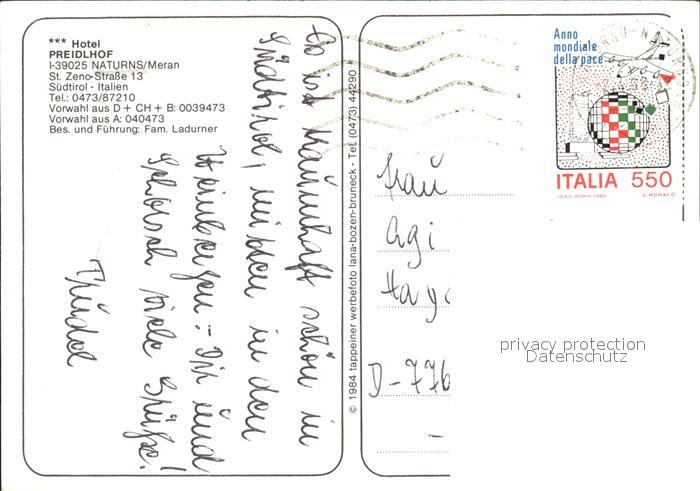 *** Hotel
PREIDLHOF
I-39025 NATURNS/Meran
St. Zeno-Straße 13
Südtirol - Italien
Tel.: 0473/87210
Vorwahl aus D + CH + B: 0039473
Vorwahl aus A: 040473
Bes. und Führung: Fam. Ladurner
Es ist traumhaft schön in
Südtirol, mitten in den
Weinbergen - Dir und
Schorsch viele Grüße!
Trudel
© 1984 tappeiner werbefoto lana-bozen-bruneck - Tel. (0473) 44290
Anno
mondiale
della pace
ITALIA 550
I.P.Z.S. ROMA 1986
Frau
Agi
Hay
D-776
-
privacy protection
Datenschutz